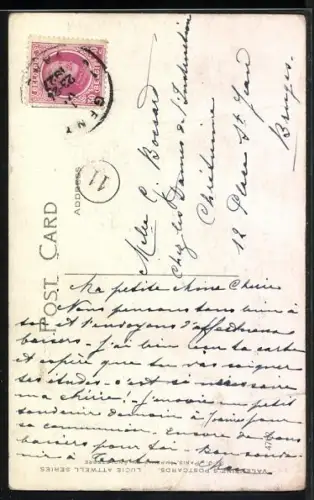 POST CARD
ADDRESS
11
GENT
Melle G. Bossard
Chez les Dames de l'Instruction
Chrétienne
12 Place St Jean
Bruges.
Ma petite Mimie Chérie
Nous pensons tous bien à
toi et t'envoyons d'affectueux
baisers - j'ai bien reçu ta carte
et espère que tu vas soigner
tes études - c'est si nécessaire
ma chérie! j'envoie un petit
souvenir demain à pour
sa communion. Encore de bons
baisers pour toi. Bon
VALENTINE'S POSTCARDS LUCIE ATTWELL SERIES